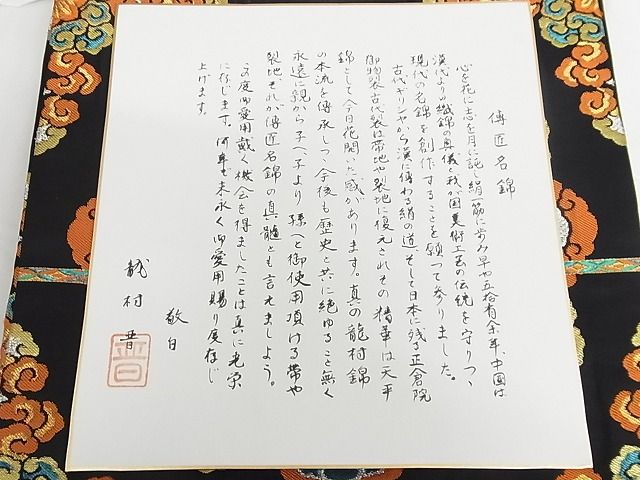 傳匠名錦
心を花に志を月に託し絹一筋に歩み早や五拾有余年、中国は
漢代よりの織錦の奥儀と我が国美術工芸の伝統を守りつゝ、
現代の名錦を創作することを願って参りました。
古代ギリシヤから漢に傳わる絹の道、そして日本に残る正倉院
御物裂古代裂は帯地や裂地に復元されその精華は天平
錦として今日花開いた感があります。真の龍村錦
の本流を傳承しつつ今後も歴史と共に絶ゆること無く
永遠に親から子へ子より孫へと御使用頂ける帯や
裂地それが傳匠名錦の真髄とも言えましょう。
この度御愛用戴く機会を得ましたことは真に光栄
に存じます。何卒も末永く御愛用賜り度存じ
上げます。
敬白
龍村晋
晋